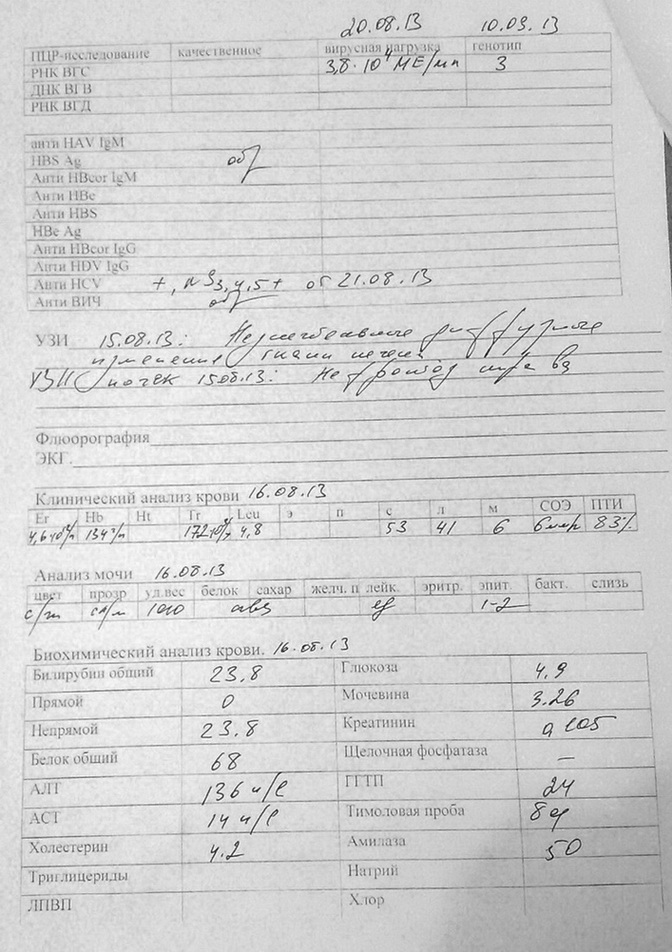 20.08.13 10.09.13
ПЦР-исследование качественное вирусная нагрузка генотип
РНК ВГС 3,8·10⁴ МЕ/мл 3
ДНК ВГВ
РНК ВГД
анти HAV IgM
HBS Ag отр
Анти HBcor IgM
Анти HBe
Анти HBS
HBe Ag
Анти HBcor IgG
Анти HDV IgG
Анти HCV +, NS3,4,5+ от 21.08.13
Анти ВИЧ отр
УЗИ 15.08.13: диффузные
изменения ткани печени
УЗИ почек 15.08.13:
Флюорография
ЭКГ.
Клинический анализ крови 16.08.13
Er Hb Ht Tr Leu э п с л м СОЭ ПТИ
134 г/л 4,8 53 41 6 83%
Анализ мочи 16.08.13
цвет прозр уд.вес белок сахар желч. п лейк. эритр. эпит. бакт. слизь
с/ж 1010 ед 1-2
Биохимический анализ крови. 16.08.13
Билирубин общий 23,8 Глюкоза 4,9
Прямой 0 Мочевина 3.26
Непрямой 23.8 Креатинин
Белок общий 68 Щелочная фосфатаза –
АЛТ 136 u/l ГГТП 24
АСТ 14 u/l Тимоловая проба
Холестерин 4.2 Амилаза 50
Триглицериды Натрий
ЛПВП Хлор